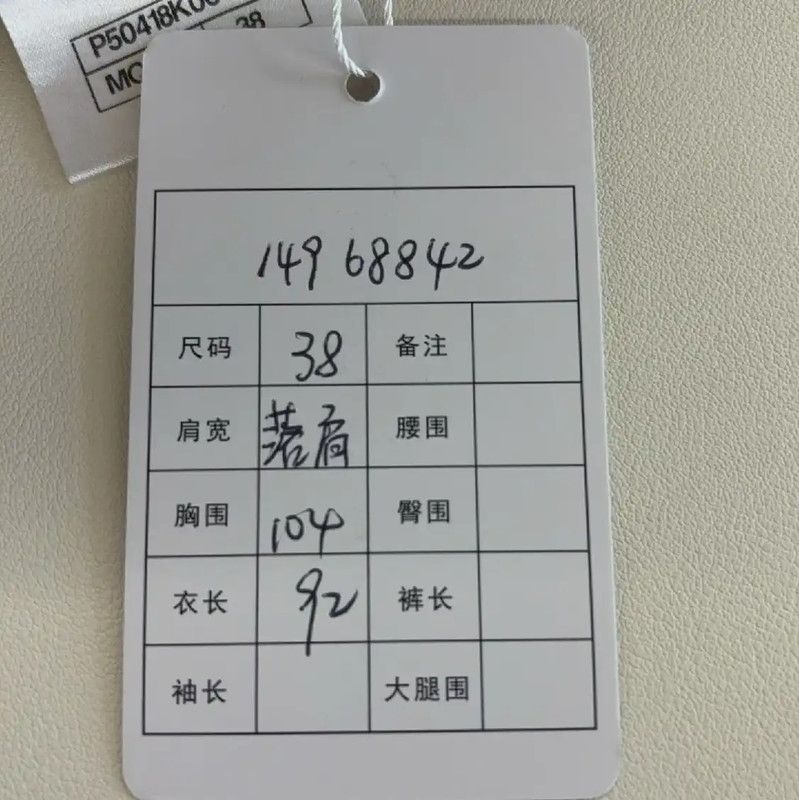 P50418K0
38
14968842
尺码 38 备注
肩宽 落肩 腰围
胸围 104 臀围
衣长 92 裤长
袖长 大腿围